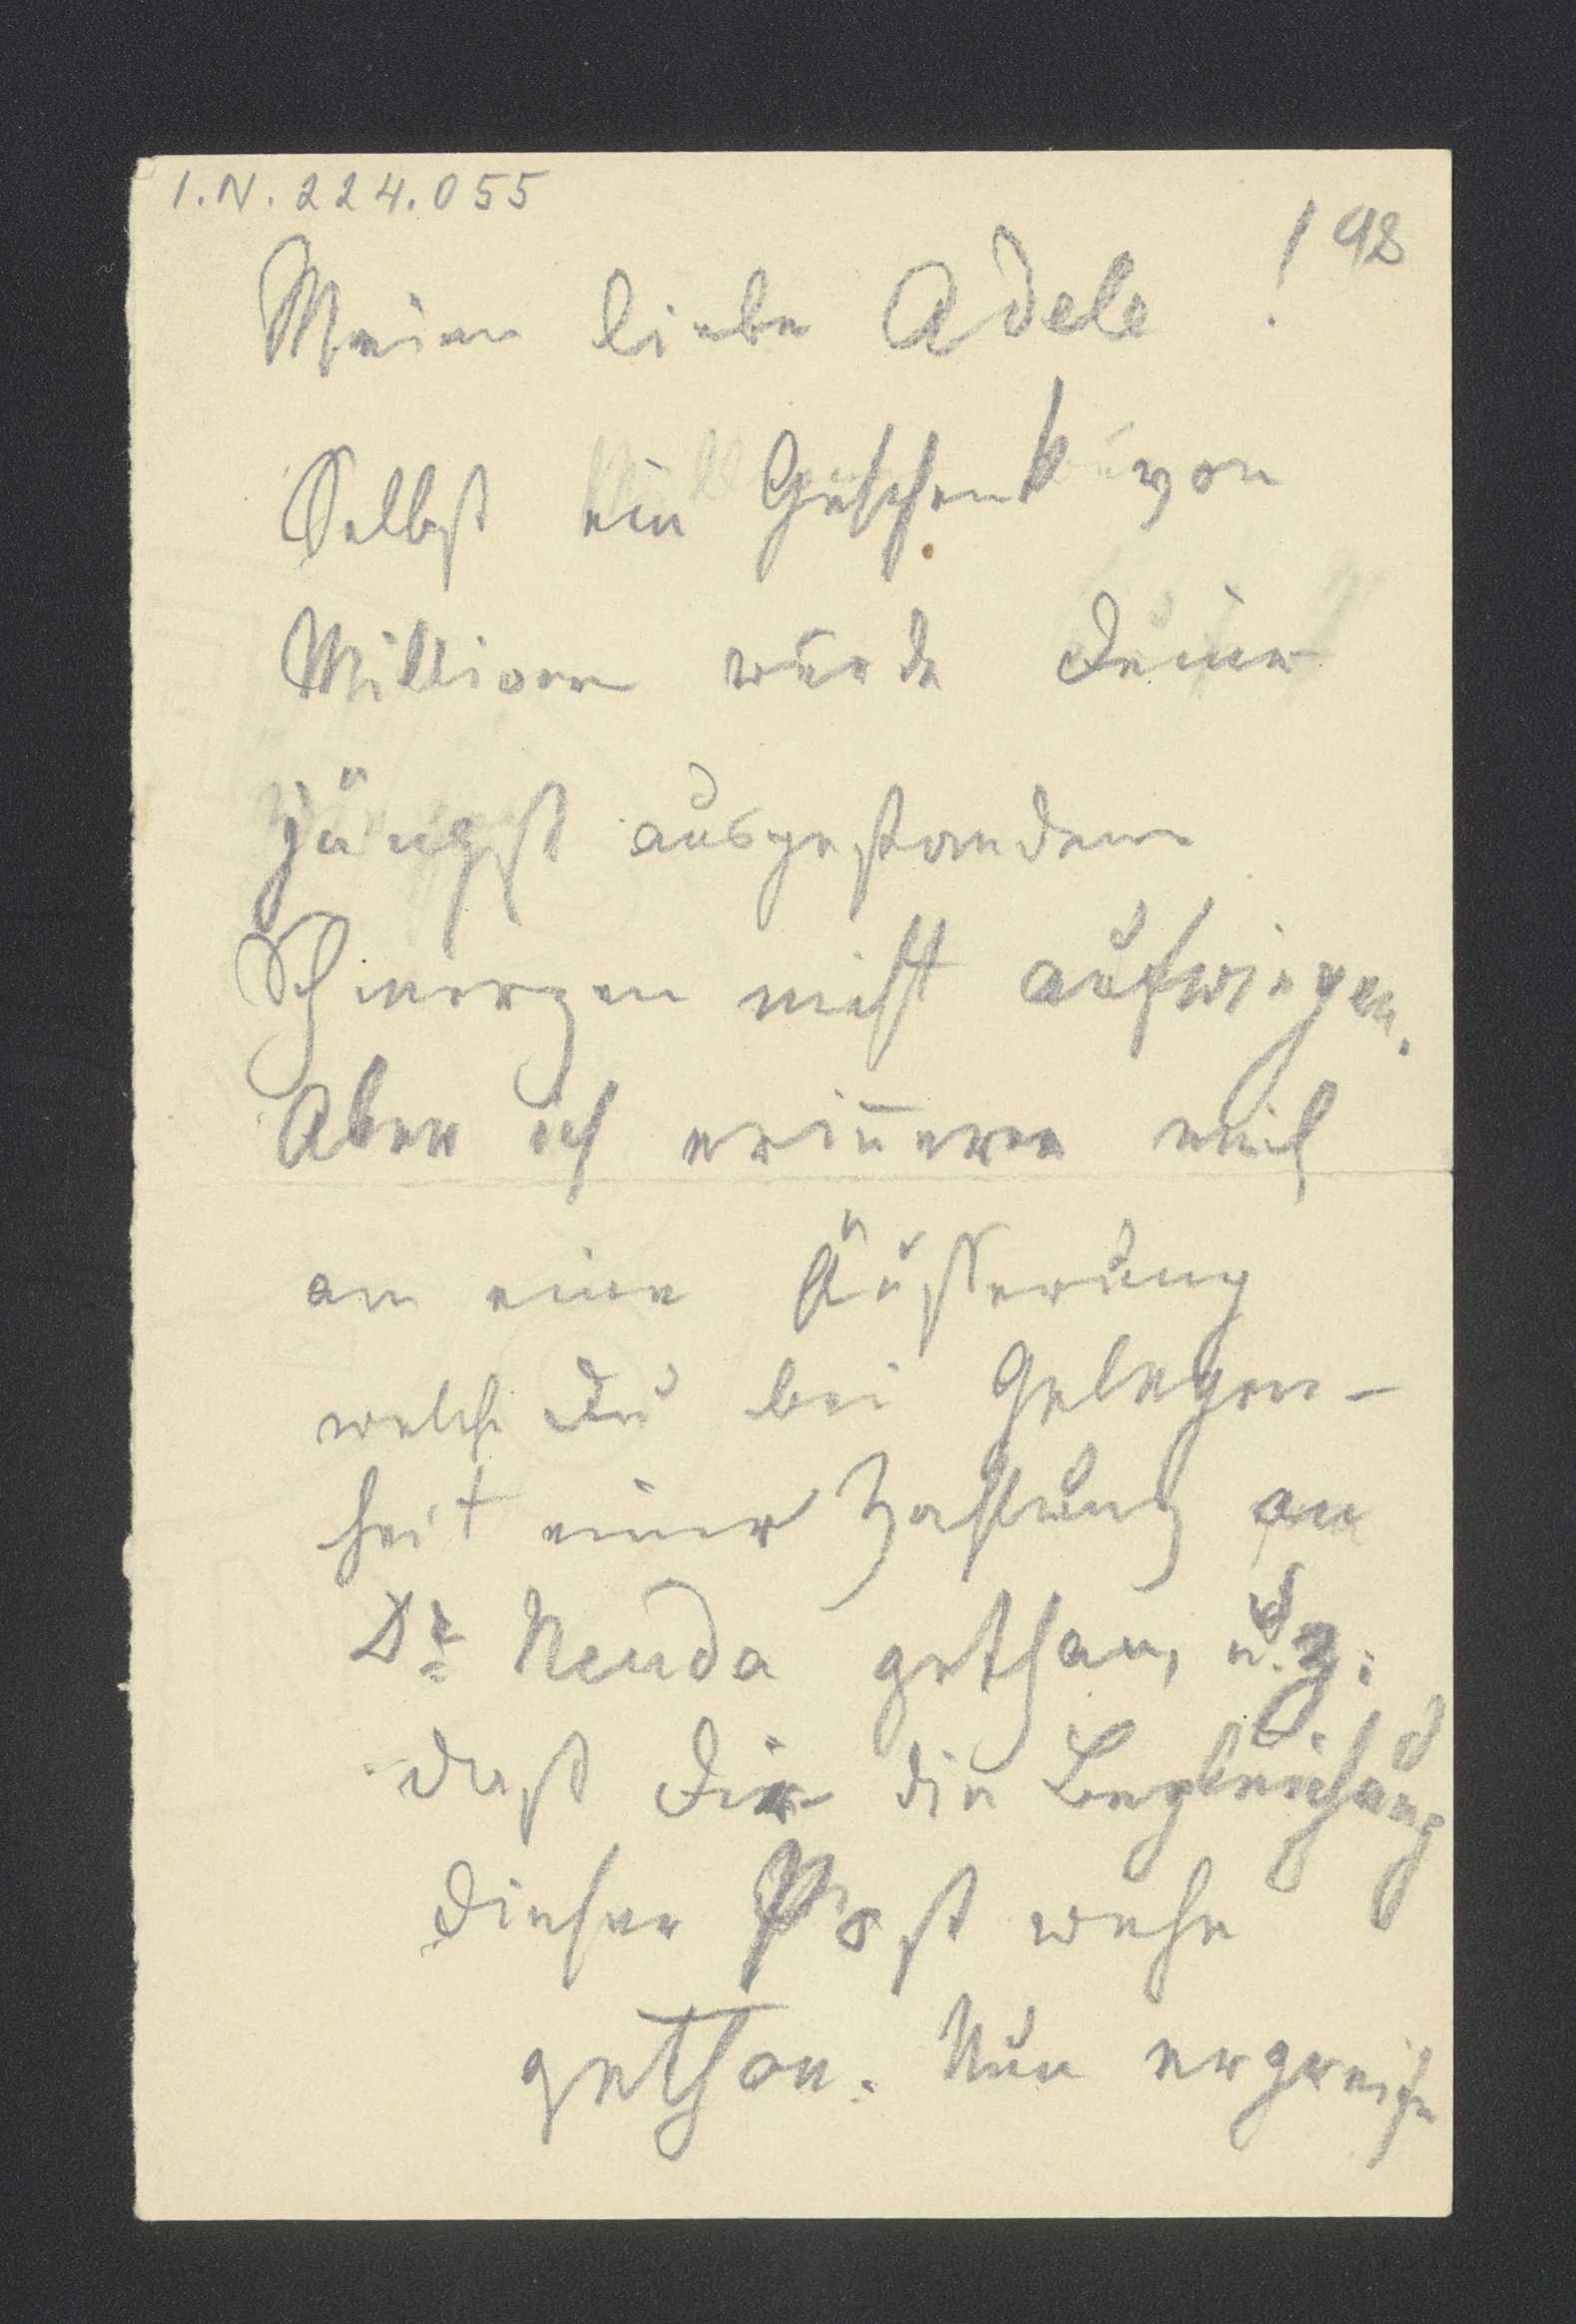 I.N. 224.055
98
Meine liebe Adele !
Selbst ein Geschenk von
Millionen würde Deine
jüngst ausgestandenen
Schmerzen nicht aufwiegen.
Aber ich erin̄ere mich
an eine Äußerung
welche Du bei Gelegen-
heit einer Zahlung an
Dr Neuda gethan, u. z:
daß Dir die Begleichung
dieser Post wehe
gethan. Nun ergreife